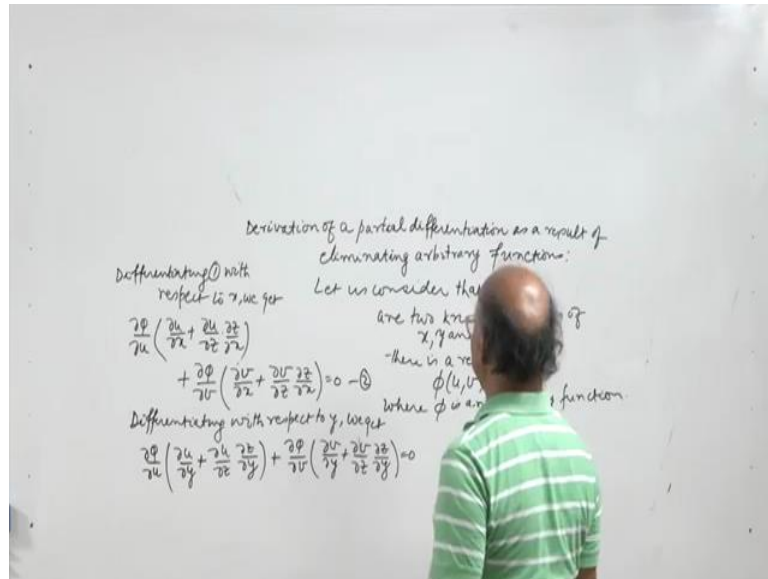 Derivation of a partial differentiation as a result of
eliminating arbitrary functions:
Let us consider that
are two of
x, y an
there is a
ϕ(u, v
where ϕ is function.
Differentiating ① with
respect to x, we get
∂ϕ/∂u (∂u/∂x + ∂u/∂z ∂z/∂x)
+ ∂ϕ/∂v (∂v/∂x + ∂v/∂z ∂z/∂x) = 0 – ②
Differentiating with respect to y, we get
∂ϕ/∂u (∂u/∂y + ∂u/∂z ∂z/∂y) + ∂ϕ/∂v (∂v/∂y + ∂v/∂z ∂z/∂y) = 0